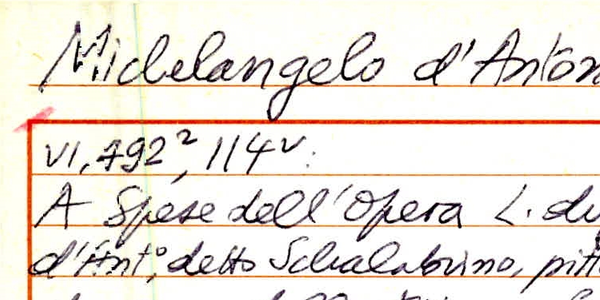 Michelangelo d'Anton
VI, 792², 114v.
A Spese dell'Opera L. du
d'Ant°, detto Schalabrino, pitt